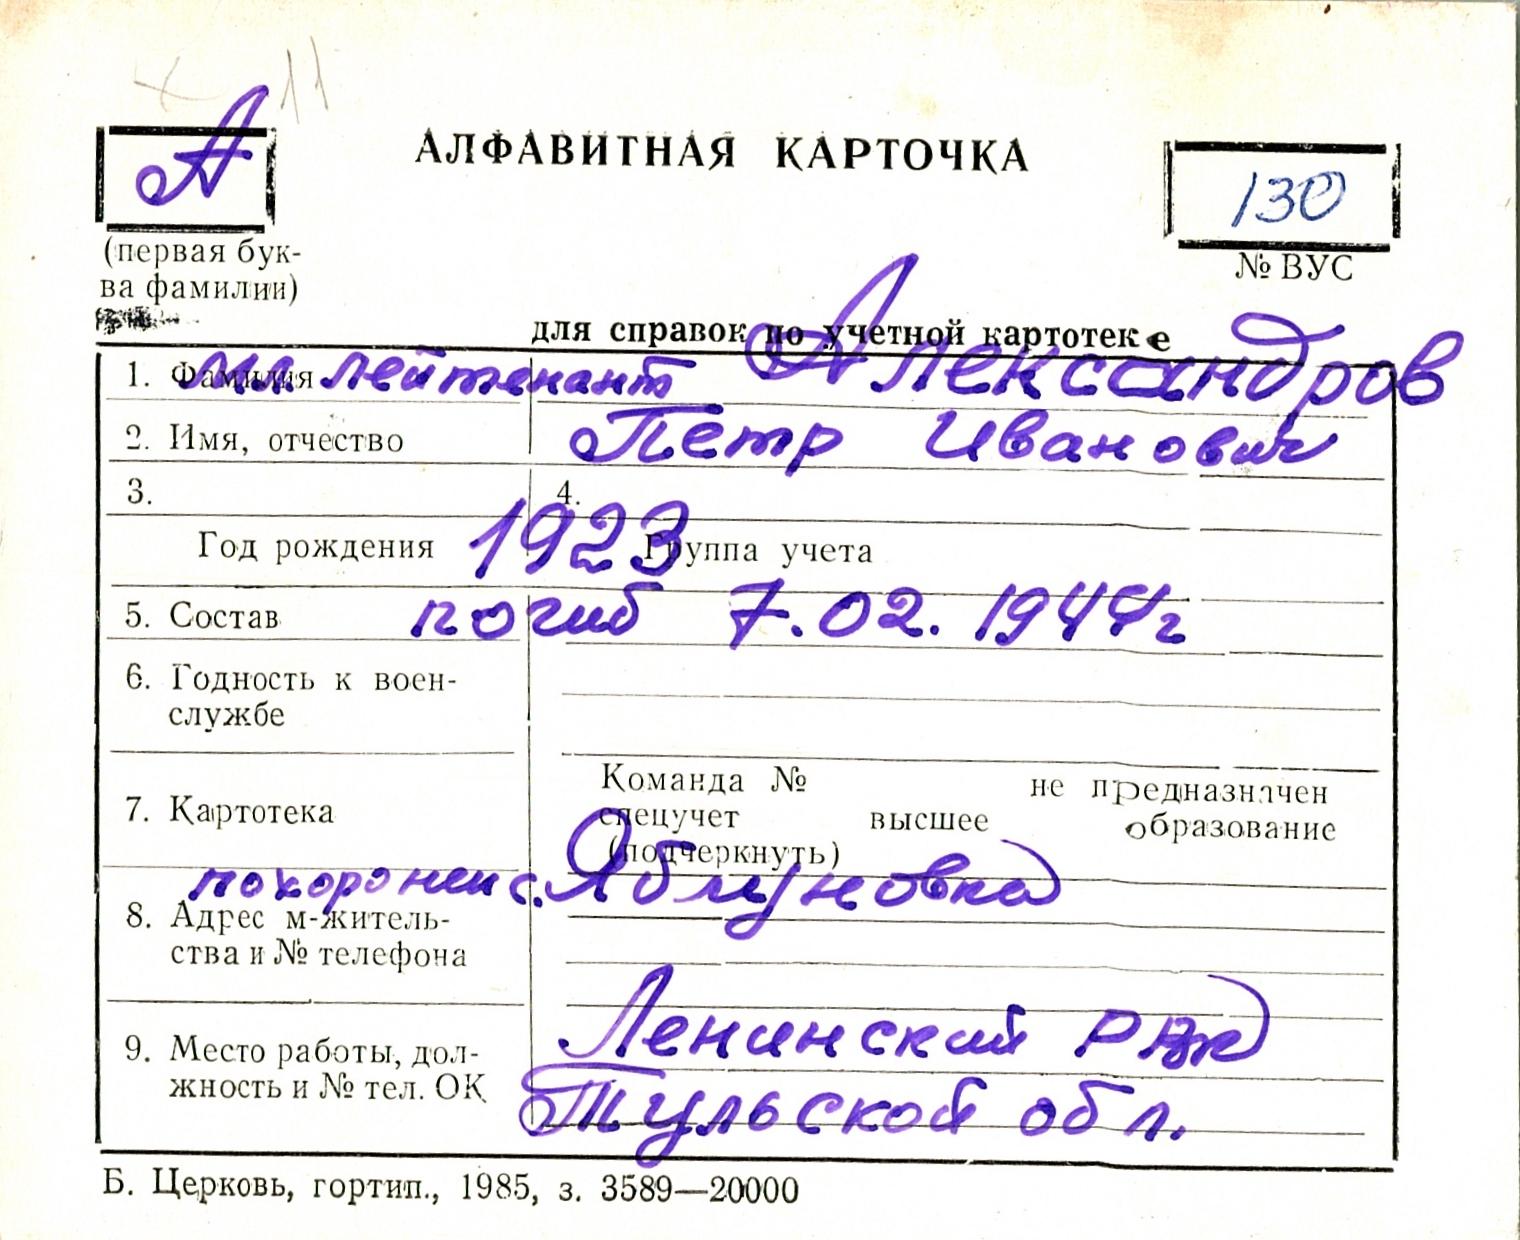 11
А
АЛФАВИТНАЯ КАРТОЧКА
130
(первая бук-
ва фамилии)
№ ВУС
для справок по учетной картотеке
1. Фамилия мл лейтенант Александров
2. Имя, отчество Петр Иванович
3. 4.
Год рождения 1923 Группа учета
5. Состав погиб 7.02.1944г
6. Годность к воен-
службе
Команда № не предназначен
7. Картотека спецучет высшее образование
(подчеркнуть)
похоронен с. Яблуновка
8. Адрес м-житель-
ства и № телефона
Ленинский РВК
9. Место работы, дол-
жность и № тел. ОК Тульской обл.
Б. Церковь, гортип., 1985, з. 3589—20000